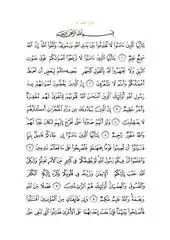 بِسْمِ اللَّهِ الرَّحْمَٰنِ الرَّحِيمِ
يَٰأَيُّهَا الَّذِينَ ءَامَنُوا لَا تُقَدِّمُوا بَيْنَ يَدَيِ اللَّهِ وَرَسُولِهِ وَاتَّقُوا اللَّهَ إِنَّ اللَّهَ
سَمِيعٌ عَلِيمٌ ١ يَٰأَيُّهَا الَّذِينَ ءَامَنُوا لَا تَرْفَعُوا أَصْوَٰتَكُمْ فَوْقَ صَوْتِ
النَّبِيِّ وَلَا تَجْهَرُوا لَهُ بِالْقَوْلِ كَجَهْرِ بَعْضِكُمْ لِبَعْضٍ أَن تَحْبَطَ
أَعْمَٰلُكُمْ وَأَنتُمْ لَا تَشْعُرُونَ ٢ إِنَّ الَّذِينَ يَغُضُّونَ أَصْوَٰتَهُمْ عِندَ
رَسُولِ اللَّهِ أُولَٰئِكَ الَّذِينَ امْتَحَنَ اللَّهُ قُلُوبَهُمْ لِلتَّقْوَىٰ لَهُم مَّغْفِرَةٌ
وَأَجْرٌ عَظِيمٌ ٣ إِنَّ الَّذِينَ يُنَادُونَكَ مِن وَرَاءِ الْحُجُرَٰتِ أَكْثَرُهُمْ
لَا يَعْقِلُونَ ٤ وَلَوْ أَنَّهُمْ صَبَرُوا حَتَّىٰ تَخْرُجَ إِلَيْهِمْ لَكَانَ خَيْرًا لَّهُمْ
وَاللَّهُ غَفُورٌ رَّحِيمٌ ٥ يَٰأَيُّهَا الَّذِينَ ءَامَنُوا إِن جَاءَكُمْ فَاسِقٌ بِنَبَإٍ
فَتَبَيَّنُوا أَن تُصِيبُوا قَوْمًا بِجَهَٰلَةٍ فَتُصْبِحُوا عَلَىٰ مَا فَعَلْتُمْ نَٰدِمِينَ ٦
وَاعْلَمُوا أَنَّ فِيكُمْ رَسُولَ اللَّهِ لَوْ يُطِيعُكُمْ فِي كَثِيرٍ مِّنَ الْأَمْرِ لَعَنِتُّمْ وَلَٰكِنَّ
اللَّهَ حَبَّبَ إِلَيْكُمُ الْإِيمَٰنَ وَزَيَّنَهُ فِي قُلُوبِكُمْ وَكَرَّهَ إِلَيْكُمُ الْكُفْرَ
وَالْفُسُوقَ وَالْعِصْيَانَ أُولَٰئِكَ هُمُ الرَّٰشِدُونَ ٧ فَضْلًا مِّنَ
اللَّهِ وَنِعْمَةً وَاللَّهُ عَلِيمٌ حَكِيمٌ ٨ وَإِن طَائِفَتَانِ مِنَ الْمُؤْمِنِينَ
اقْتَتَلُوا فَأَصْلِحُوا بَيْنَهُمَا فَإِن بَغَتْ إِحْدَىٰهُمَا عَلَى الْأُخْرَىٰ فَقَٰتِلُوا الَّتِي تَبْغِي حَتَّىٰ